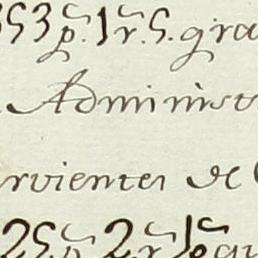 353 p.s 1 r.s 5. gra
Administ
rvientes de
25 p.s 2 r.s